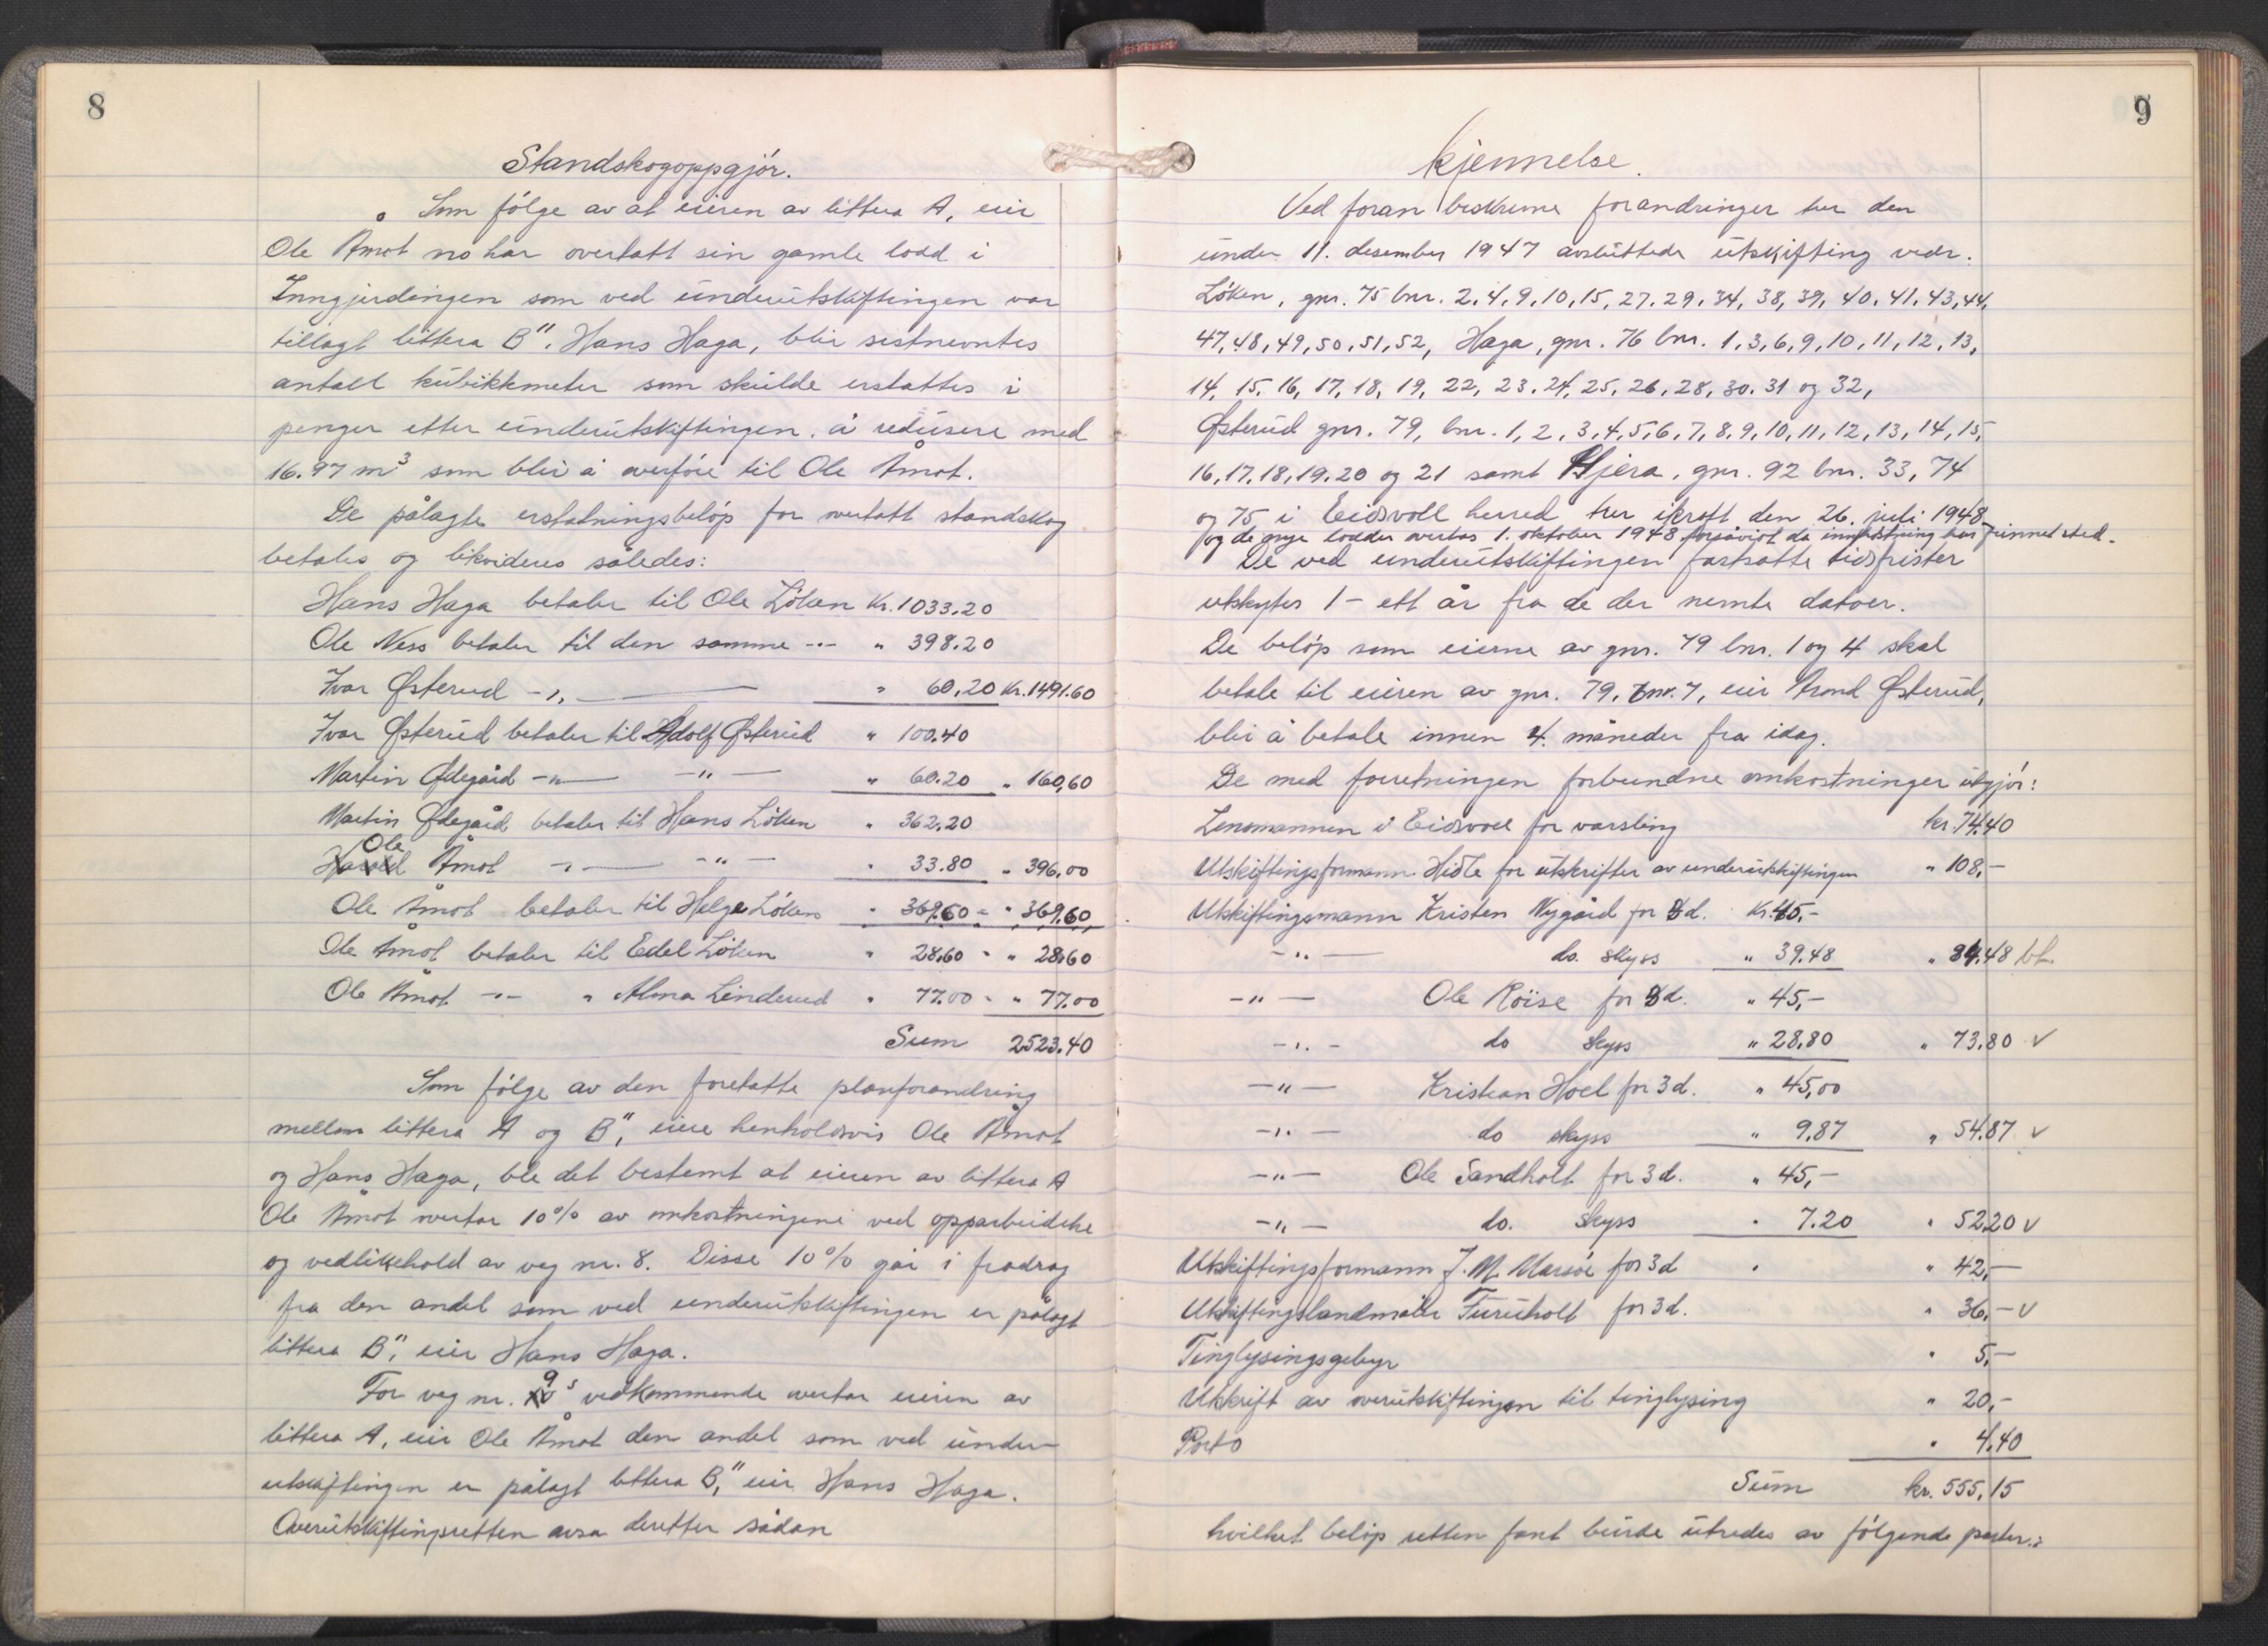 8
Standskogoppgjör.
Som fölge av at eieren av littera A, eier
Ole Åmot no har overtatt sin gamle lodd i
Inngjerdingen som ved underutskiftingen var
tillagt littera B", Hans Haga, blir sistnevntes
antall kubikkmeter som skulde erstattes i
penger etter underutskiftingen, å redusere med
16.97 m³ som blir å overföre til Ole Åmot.
De pålagte erstatningsbelöp for overtatt standskog
betales og likvideres således:
Hans Haga betaler til Ole Löken Kr. 1033.20
Ole Ness betaler til den samme -"- " 398.20
Ivar Østerud -"- " 60,20 Kr. 1491.60
Ivar Østerud betaler til Adolf Østerud " 100.40
Martin Ødegård -"- -"- " 60.20 " 160,60
Martin Ødegård betaler til Hans Löken " 362.20
Ole
Harald Åmot -"- -"- " 33.80 " 396,00
Ole Åmot betaler til Helge Löken " 369,60 - " 369,60
Ole Åmot betaler til Edel Löken " 28,60 - " 28,60
Ole Åmot -"- " Alma Linderud " 77.00 - " 77.00
Sum 2523.40
Som fölge av den foretatte planforandring
mellom littera A og B", eiere henholdsvis Ole Åmot
og Hans Haga, ble det bestemt at eieren av littera A
Ole Åmot overtar 10% av omkostningene ved opparbeidelse
og vedlikehold av veg nr. 8. Disse 10% går i fradrag
fra den andel som ved underutskiftingen er pålagt
littera B", eier Hans Haga.
9
For veg nr. 10s vedkommende overtar eieren av
littera A, eier Ole Åmot den andel som ved under-
utskiftingen er pålagt littera B", eier Hans Haga.
Overutskiftingsretten avsa deretter sådan
9
kjennelse.
Ved foran beskrevne forandringer trer den
under 11. desember 1947 avsluttede utskifting vedr.
Löken, gnr. 75 bnr. 2, 4, 9, 10, 15, 27, 29, 34, 38, 39, 40, 41, 43, 44,
47, 48, 49, 50, 51, 52, Haga, gnr. 76 bnr. 1, 3, 6, 9, 10, 11, 12, 13,
14, 15, 16, 17, 18, 19, 22, 23, 24, 25, 26, 28, 30, 31 og 32,
Østerud gnr. 79, bnr. 1, 2, 3, 4, 5, 6, 7, 8, 9, 10, 11, 12, 13, 14, 15,
16, 17, 18, 19, 20 og 21 samt Hjera, gnr. 92 bnr. 33, 74
og 75 i Eidsvoll herred trer ikraft den 26. juli 1948
og de nye lodder overtas 1. oktober 1948 forsåvidt da innhöstning har funnet sted.
De ved underutskiftingen fastsatte tidsfrister
utskytes 1- ett år fra de der nevnte datoer.
De belöp som eierne av gnr. 79 bnr. 1 og 4 skal
betale til eieren av gnr. 79, bnr. 7, eier Trond Østerud,
blir å betale innen 4 måneder fra idag.
De med forretningen forbundne omkostninger utgjör:
Lensmannen i Eidsvoll for varsling kr. 74.40
Utskiftingsformann Hidle for utskrifter av underutskiftingen " 108,-
Utskiftingsmann Kristen Nygård for 3 d. Kr. 45,-
-"- do. skyss " 39.48 " 84.48 bt.
-"- Ole Röise for 3 d. " 45,-
-"- do skyss " 28,80 " 73,80 v
-"- Kristian Hoel for 3 d. " 45,00
-"- do skyss " 9,87 " 54.87 v
-"- Ole Sandholt for 3 d. " 45,-
-"- do. skyss " 7.20 " 52.20 v
Utskiftingsformann J. M. Marsöe for 3 d " " 42,-
Utskiftingslandmåler Furuholt for 3 d. " 36,- v
Tinglysingsgebyr " 5,-
Utskrift av overutskiftingen til tinglysing " 20,-
Porto " 4,40
Sum kr. 555,15
hvilket belöp retten fant burde utredes av fölgende parter: